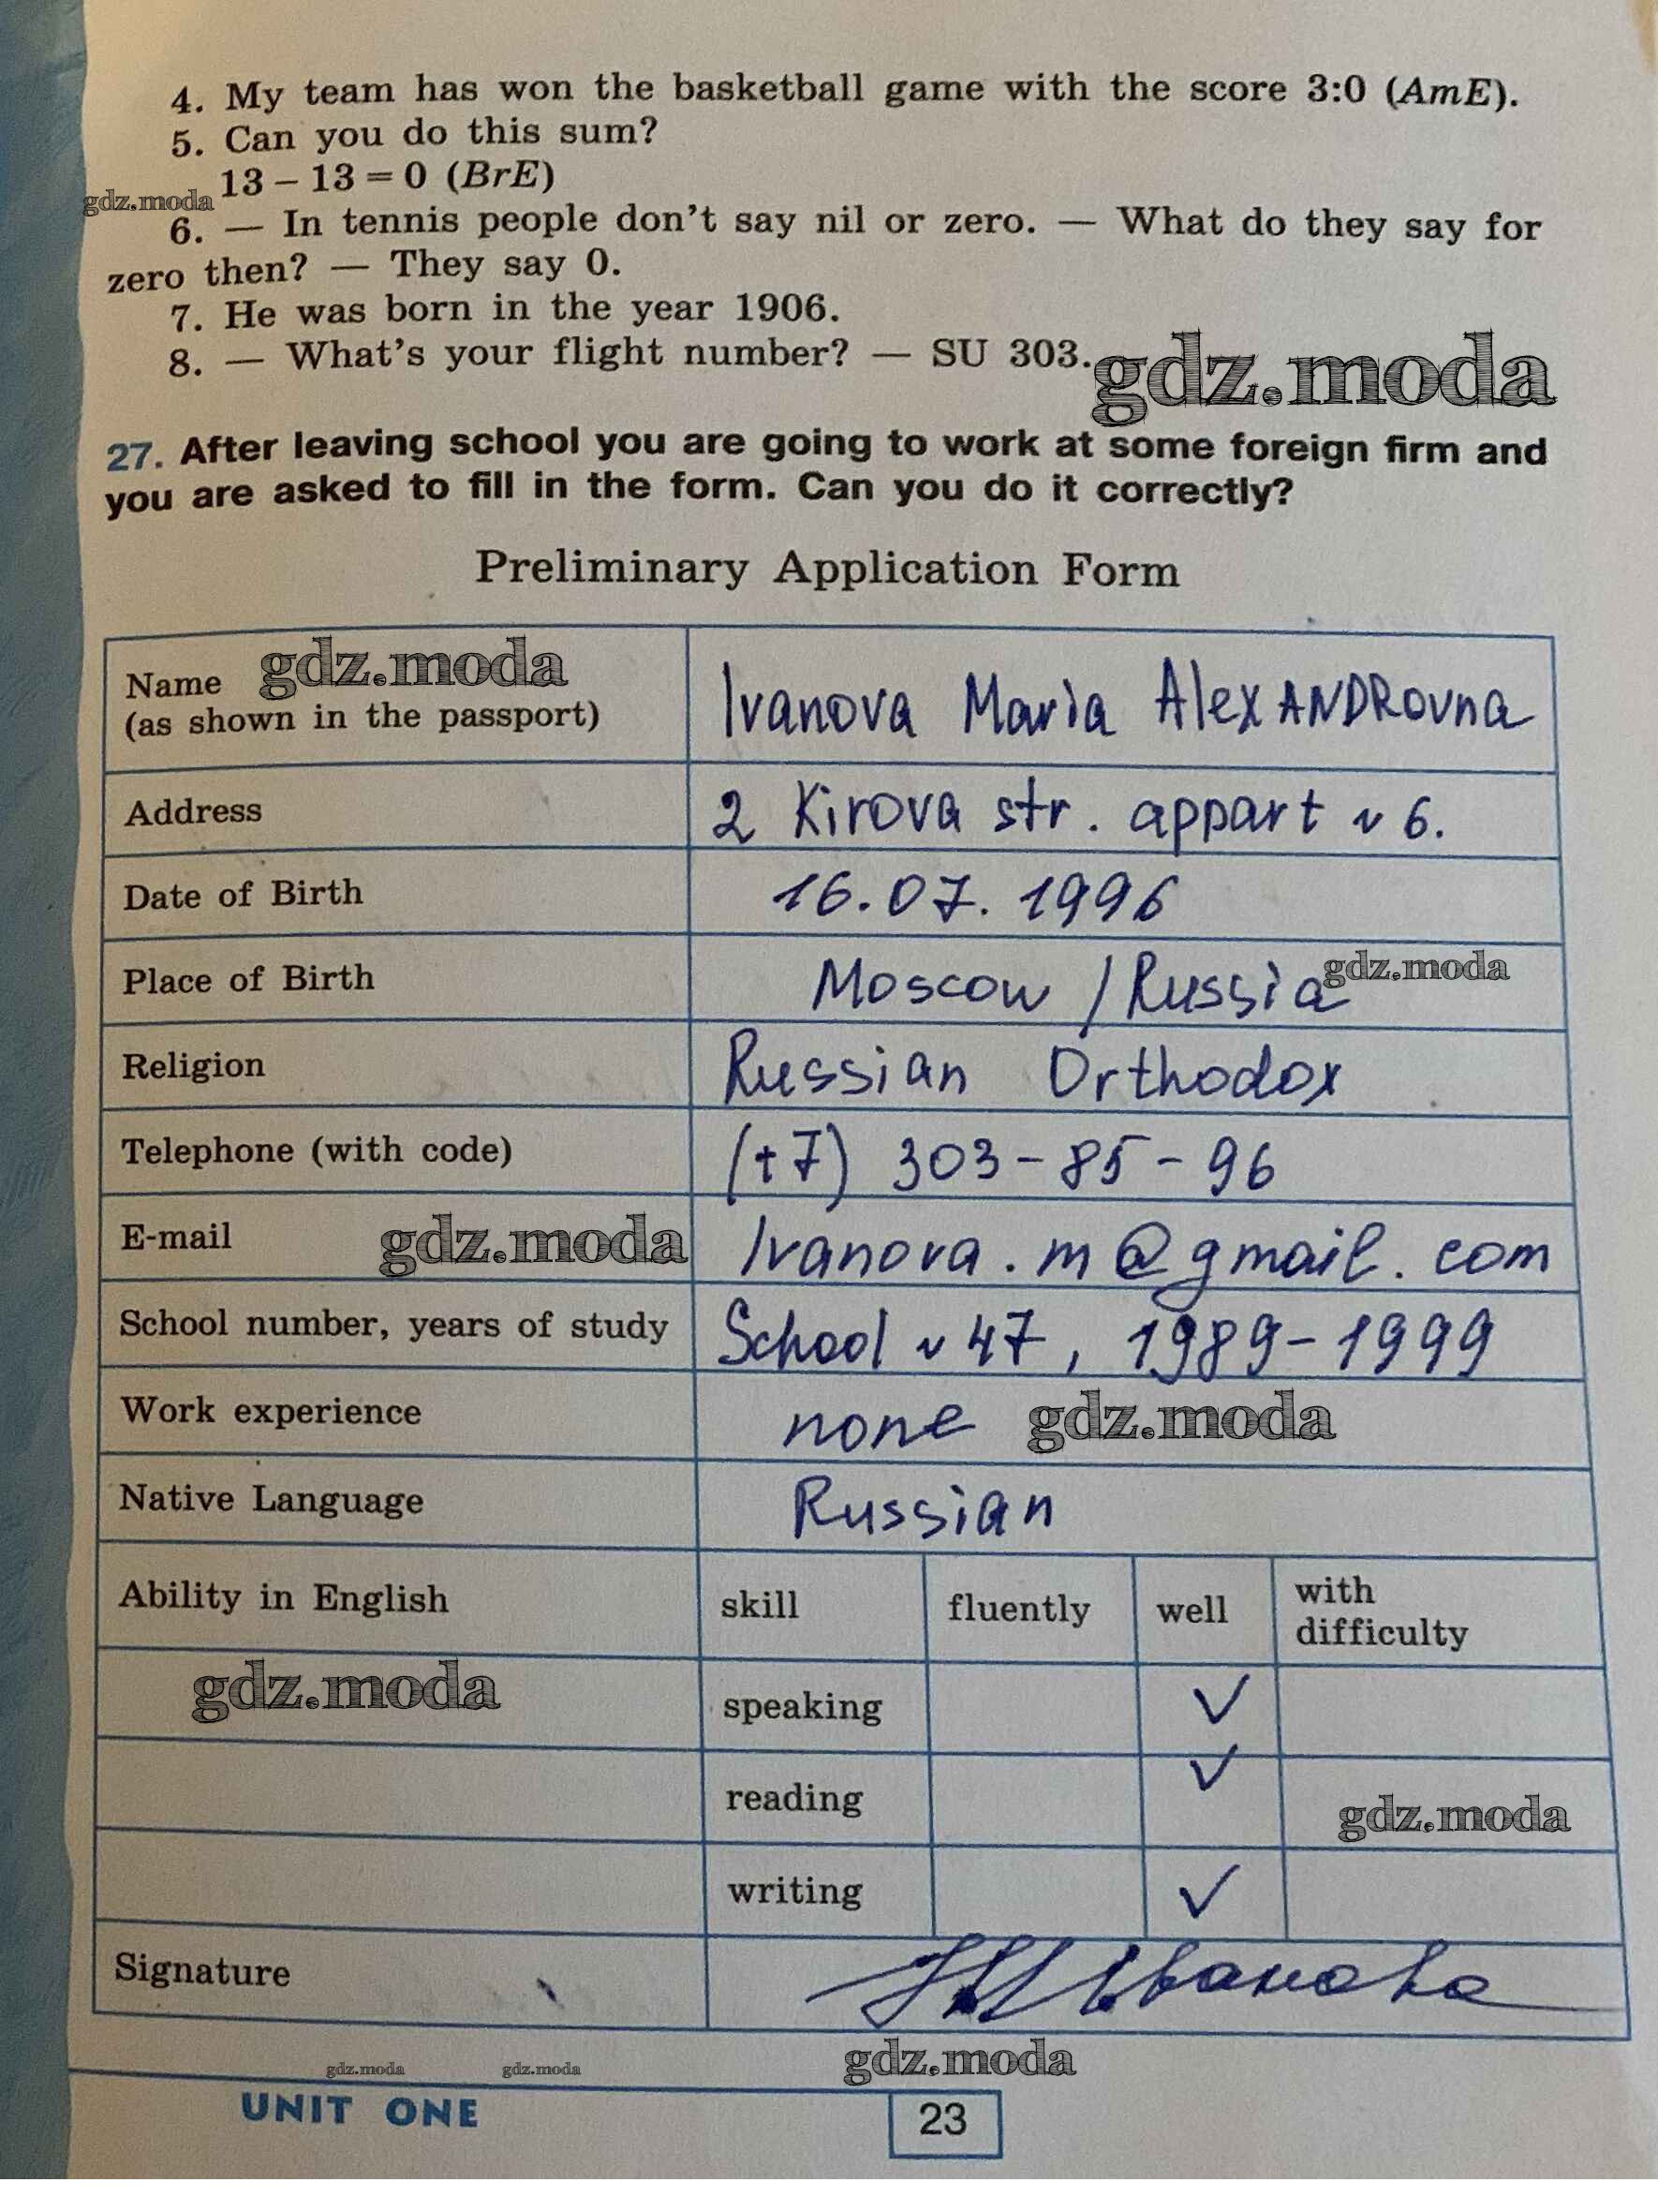 4. My team has won the basketball game with the score 3:0 (AmE).
5. Can you do this sum?
13 – 13 = 0 (BrE)
gdz.moda
6. — In tennis people don't say nil or zero. — What do they say for
zero then? — They say 0.
7. He was born in the year 1906.
8. — What's your flight number? — SU 303.
gdz.moda
27. After leaving school you are going to work at some foreign firm and
you are asked to fill in the form. Can you do it correctly?
Preliminary Application Form
gdz.moda
Name
(as shown in the passport)
Ivanova Maria AlexANDROvna
Address
2 Kirova str. appart № 6.
Date of Birth
16.07.1996
Place of Birth
Moscow / Russia
gdz.moda
Religion
Russian Orthodox
Telephone (with code)
(+7) 303-85-96
E-mail
gdz.moda
Ivanova.m@gmail.com
School number, years of study
School № 47, 1989-1999
Work experience
none
gdz.moda
Native Language
Russian
Ability in English
skill
fluently
well
with
difficulty
gdz.moda
speaking
✓
reading
✓
gdz.moda
writing
✓
Signature
Иванова
gdz.moda
gdz.moda
gdz.moda
UNIT ONE
23